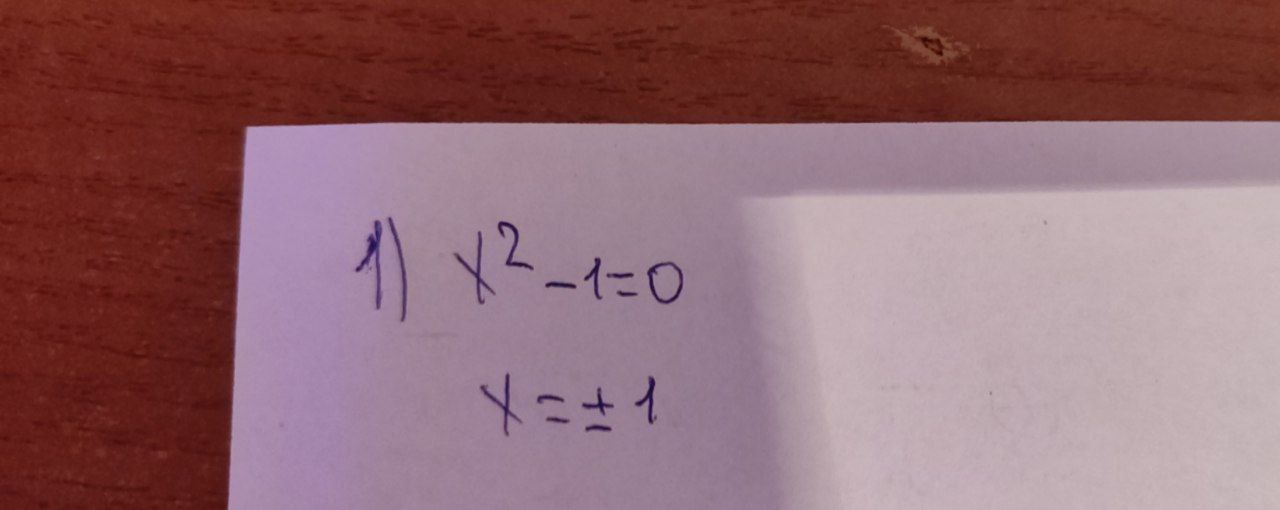 1) x² - 1 = 0
x = ± 1